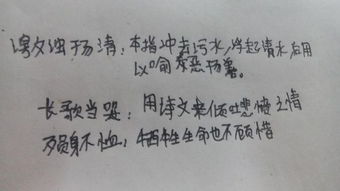 激浊扬清：本指冲去污水，浮起清水后用
以喻奈恶扬善。
长歌当哭：用诗文来倾吐悲愤之情
殒身不恤：牺牲生命也不顾惜